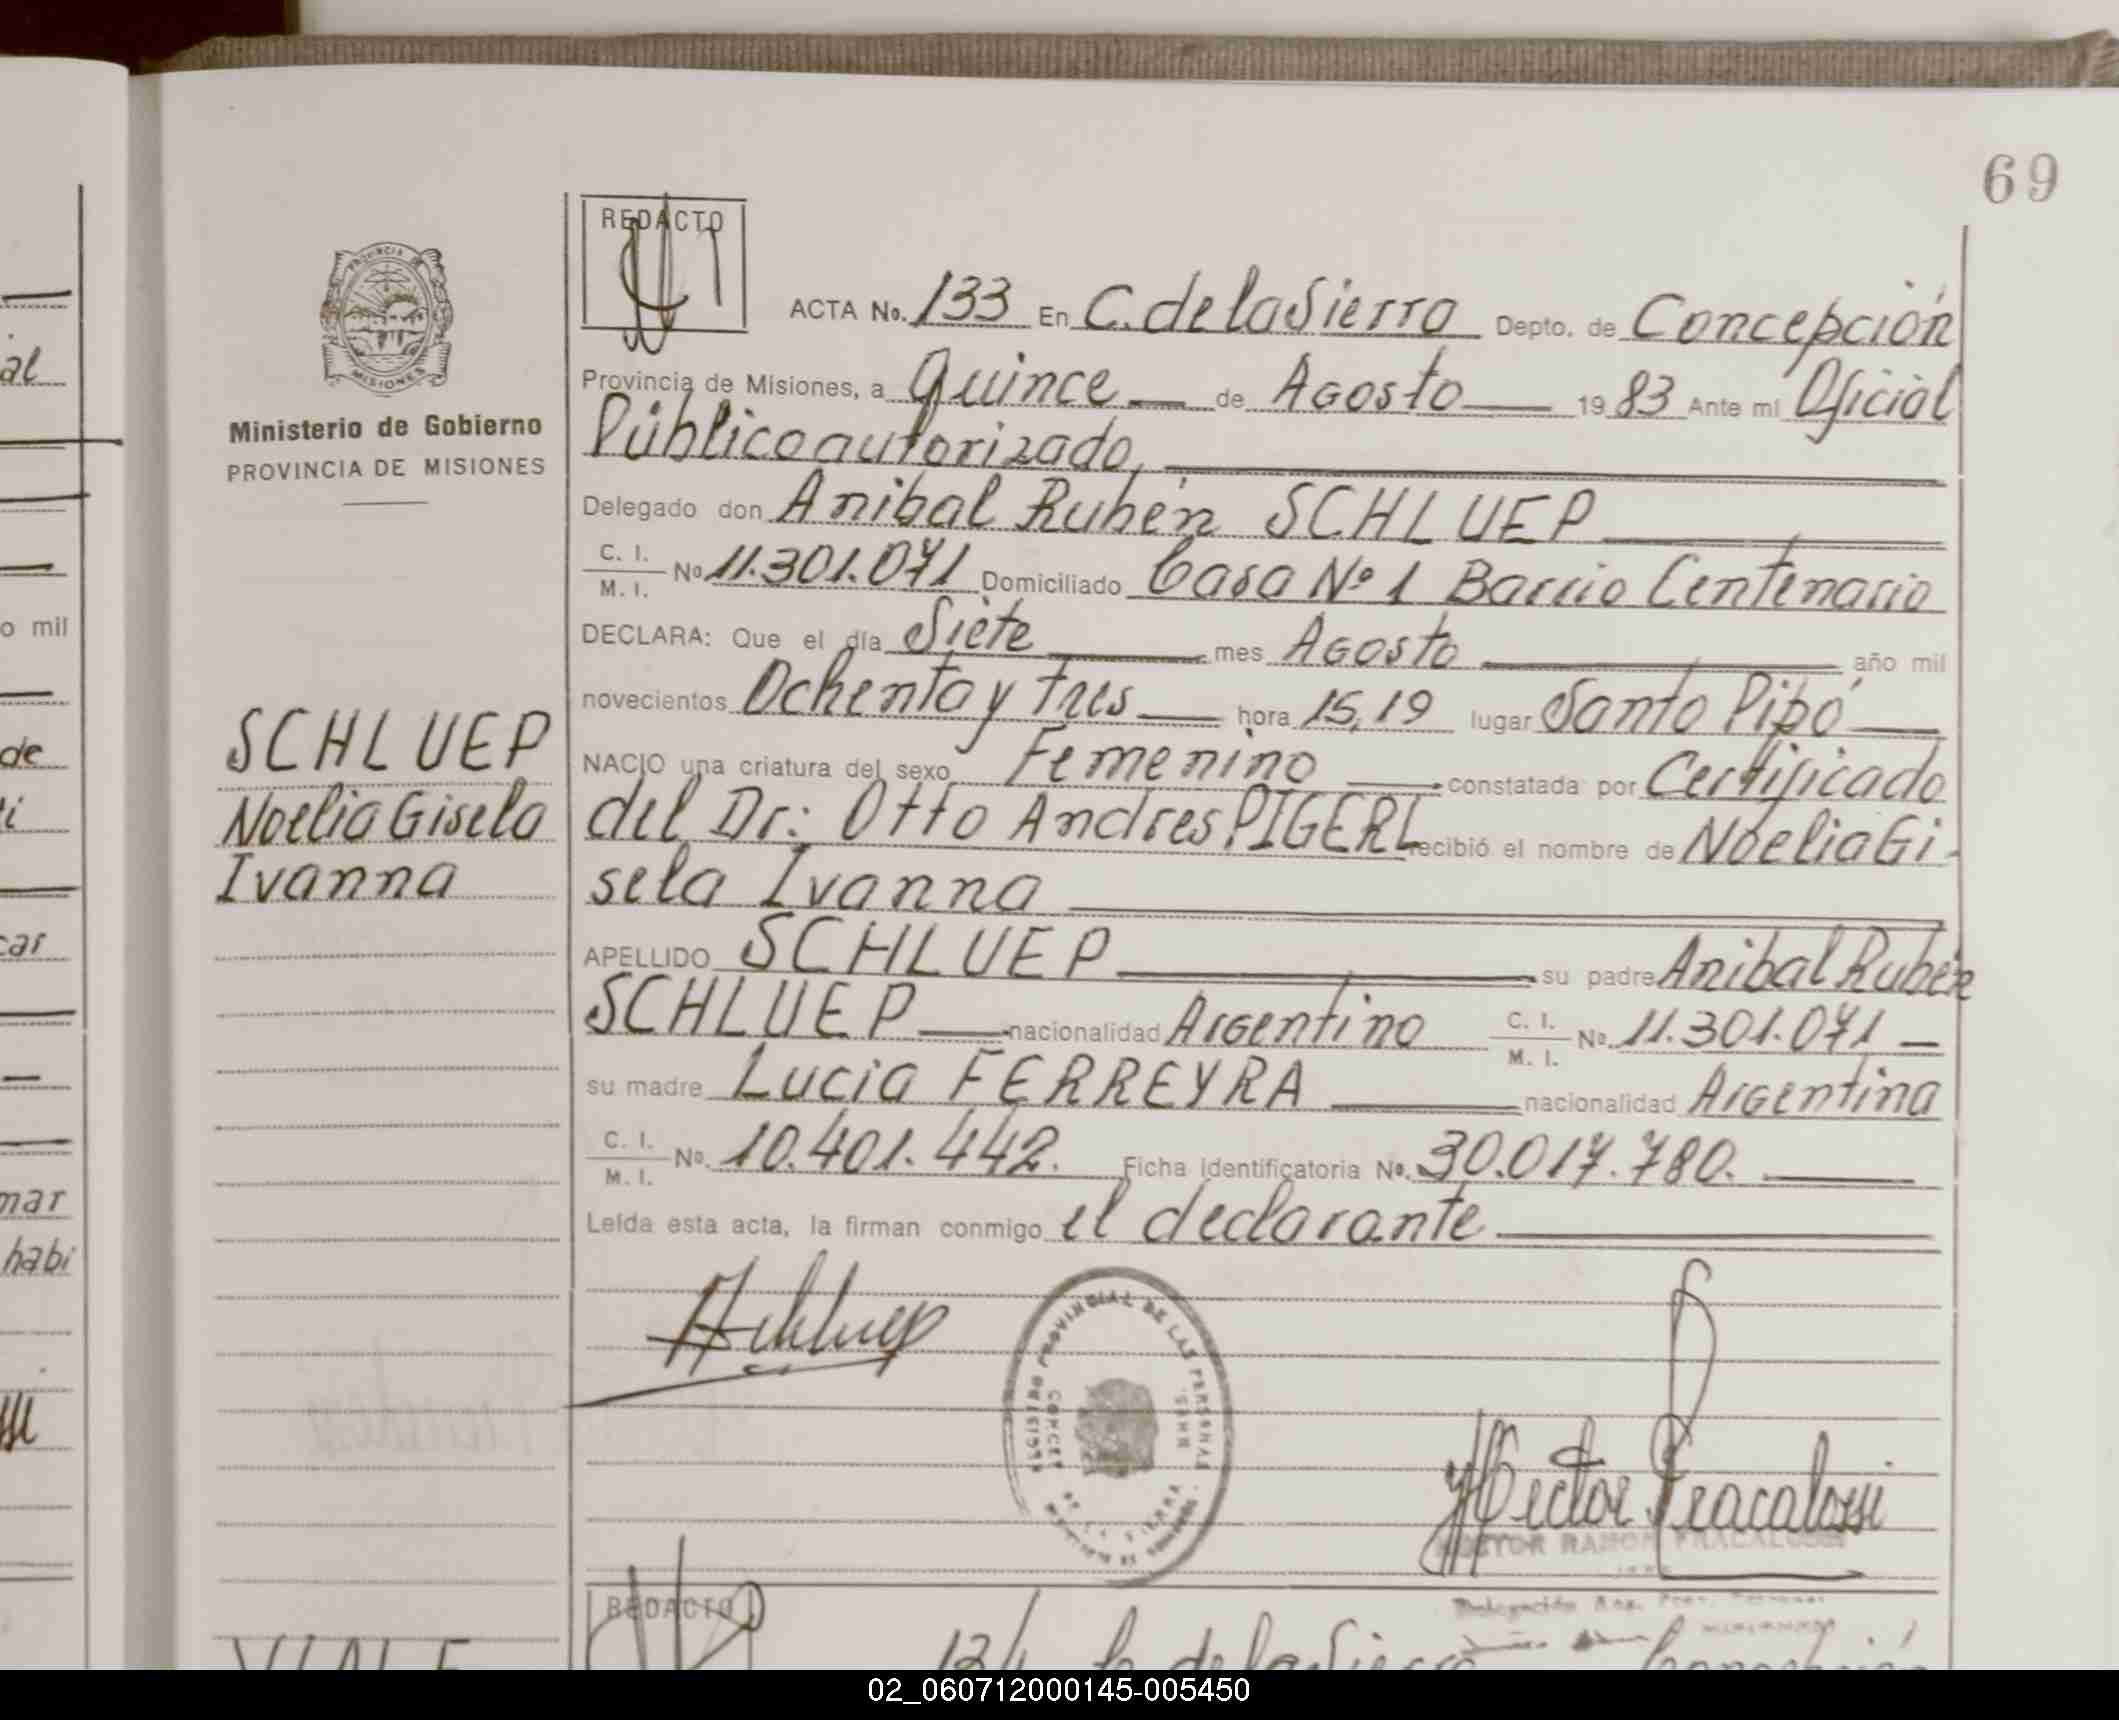 69
REDACTO
ACTA No. 133 En C. de la Sierra Depto. de Concepción
Provincia de Misiones, a Quince de Agosto 1983 Ante mí Oficial
Público autorizado,
Delegado don Anibal Rubén SCHLUEP
C. I.
M. I. No 11.301.071 Domiciliado Casa Nº 1 Barrio Centenario
DECLARA: Que el día Siete mes Agosto año mil
novecientos Ochenta y tres hora 15,19 lugar Santo Pipó
NACIO una criatura del sexo Femenino constatada por Certificado
del Dr: Otto Andres PIGERL recibió el nombre de Noelia Gi-
sela Ivanna
APELLIDO SCHLUEP su padre Anibal Rubén
SCHLUEP nacionalidad Argentino C. I. M. I. No. 11.301.071
su madre Lucia FERREYRA nacionalidad Argentina
C. I.
M. I. No. 10.401.442. Ficha Identificatoria No. 30.017.780.
Leída esta acta, la firman conmigo el declarante
PROVINCIA DE
MISIONES
Ministerio de Gobierno
PROVINCIA DE MISIONES
SCHLUEP
Noelia Gisela
Ivanna
ASchluep
REGISTRO PROVINCIAL DE LAS PERSONAS
DE LA SIERRA
Hector Fracalossi
HECTOR RAMON FRACALOSSI
REDACTO
C. de la Sierra Concepción
al
o mil
de
i
car
mar
habi
02_060712000145-005450